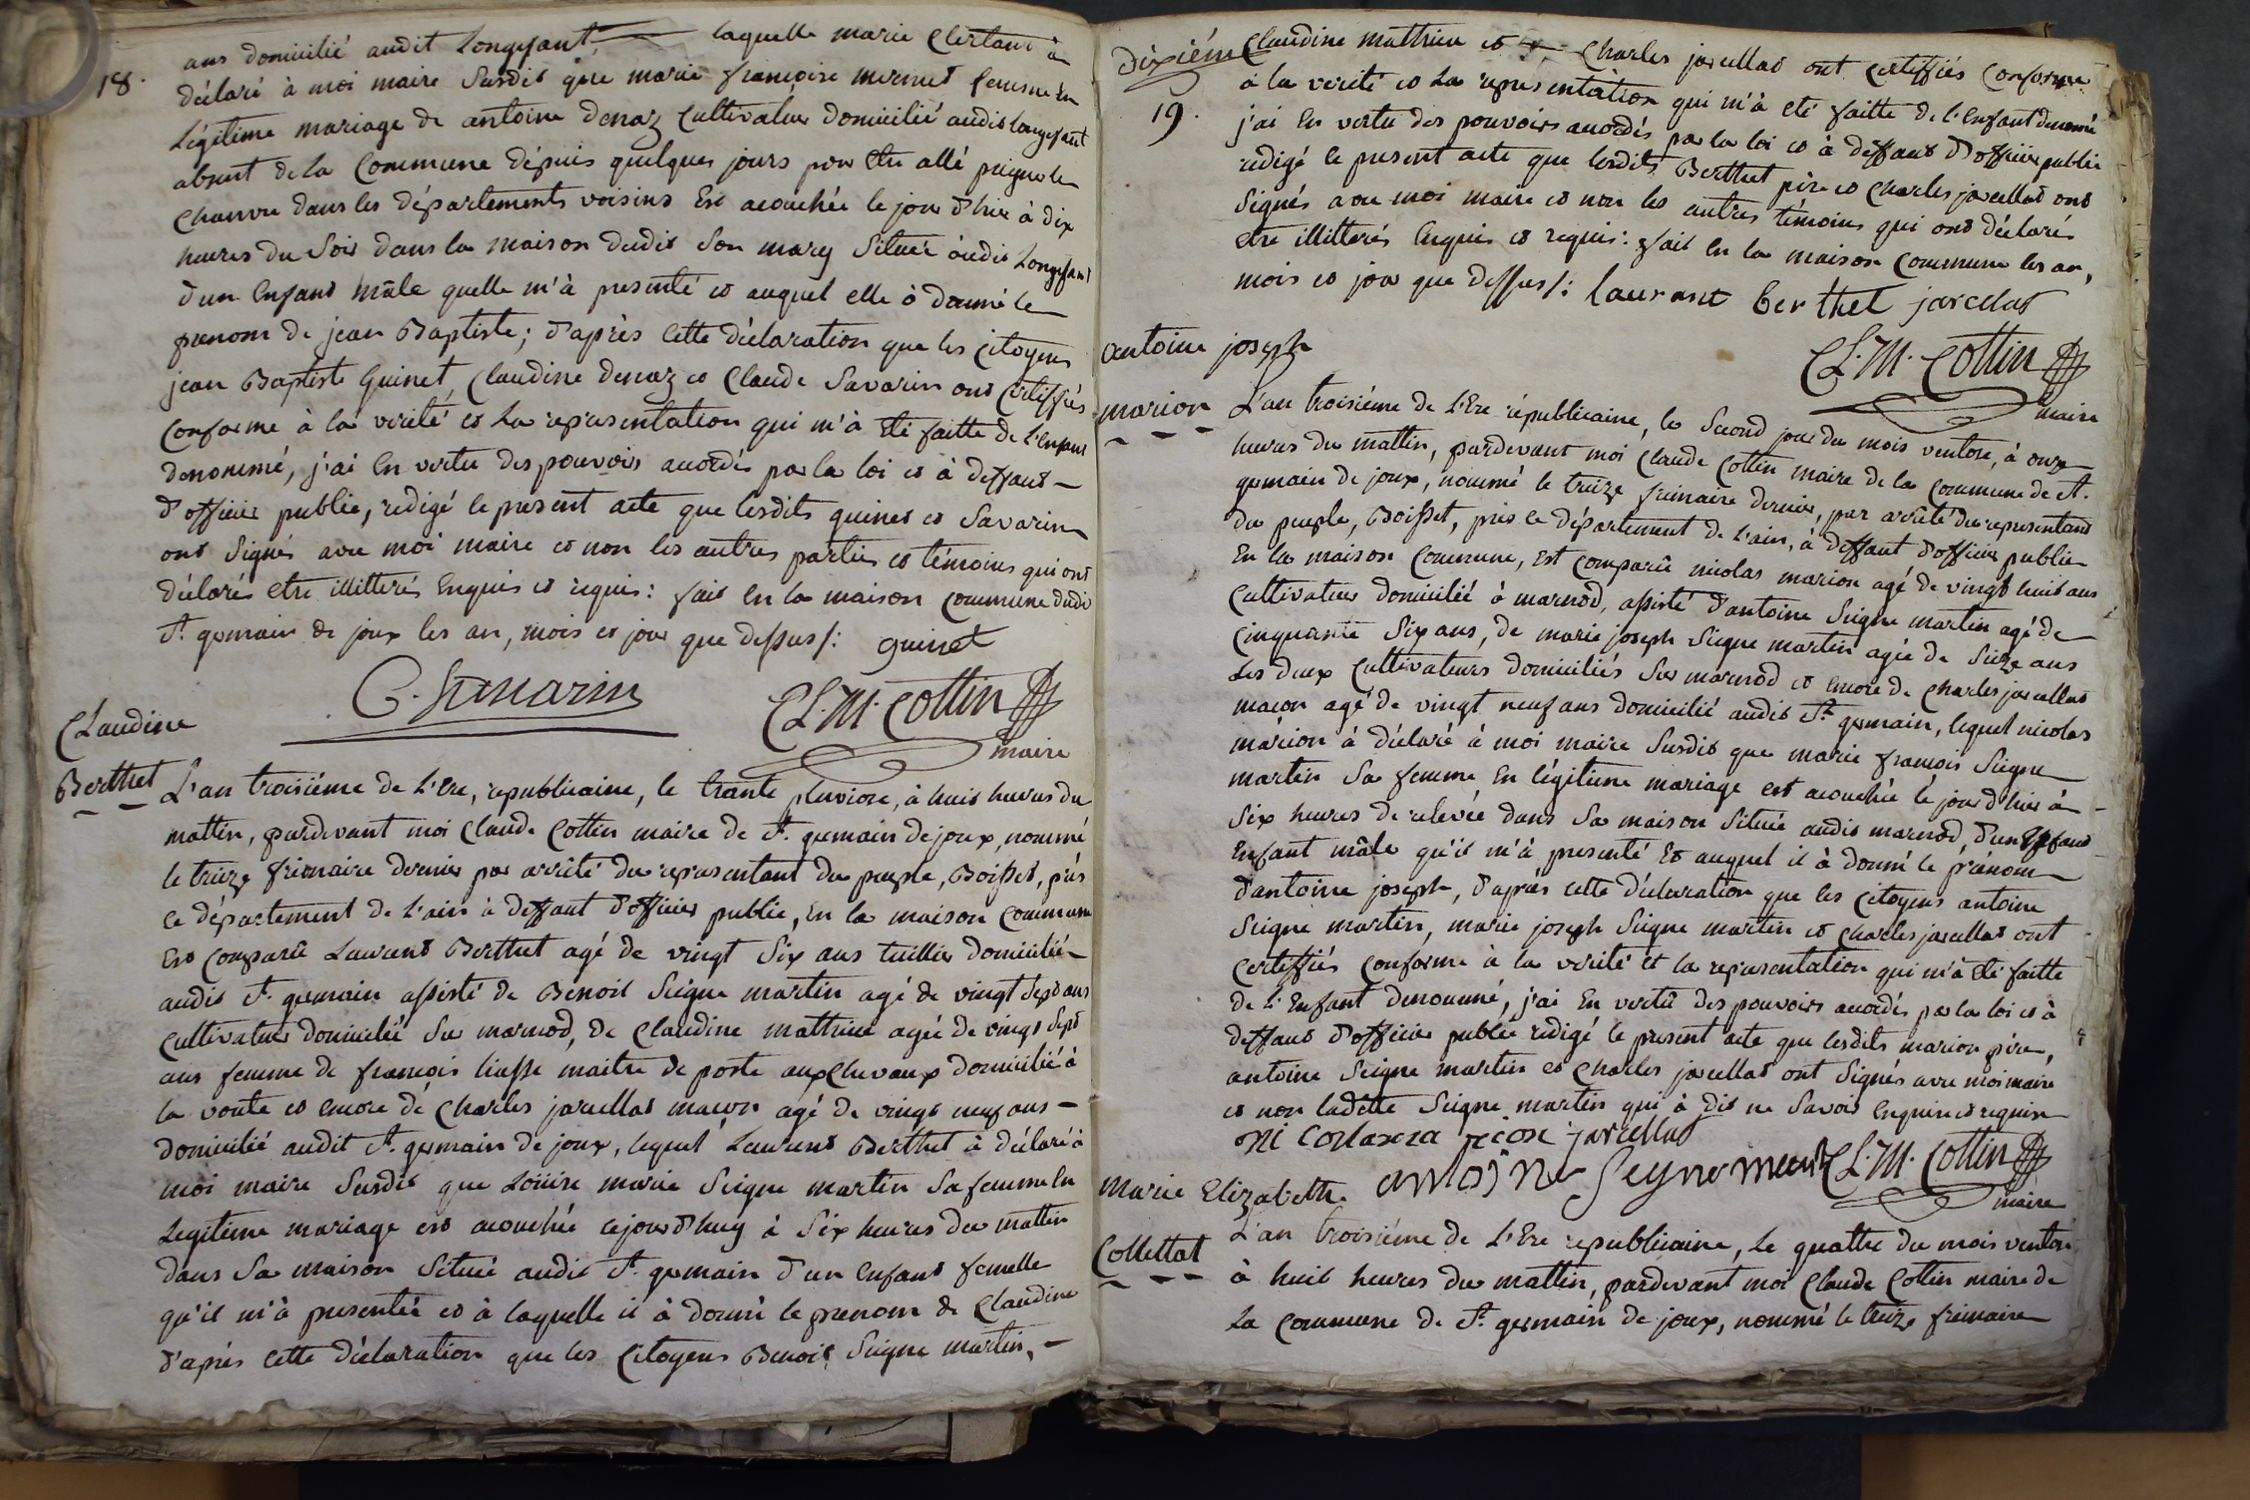 18.
ans domicilié audit Longefant, laquelle marie Clertant à
déclaré à moi maire Susdit que marie françoise mermet femme En
Légitime mariage de antoine Denaz Cultivateur domicilié audit Longefant
absent de la Commune dépuis quelques jours pour etre allé peigner le
chanvre dans les départements voisins Est acouchée le jour d'hier à dix
heures du Soir dans la maison dudit Son mary Située audit Longefant
d'un Enfant mâle quelle m'à presenté et auquel elle à donné le
prenom de jean Baptiste; d'après Cette déclaration que les Citoyens
jean Baptiste Guinet, Claudine Denaz et Claude Savarin ont Certiffiés
Conforme à la verité et La representation qui m'à été faitte de L'enfant
denommé, j'ai En vertu des pouvoirs accordés par la loi et à deffaut
d'officier public, redigé le present acte que lesdits guinet et Savarin
ont Signés avec moi maire et non les autres parties et témoins qui ont
déclarés etre illitterés Enquis et requis: fait En la maison Commune dudit
St. germain de joux les an, mois et jour que dessus /: guinet
C. Savarin CL. M. Cottin
maire
Claudine
Berthet
L'an troisiéme de L'Ere, republicaine, le trante pluviose, à huit heures du
mattin, pardevant moi Claude Cottin maire de St. germain de joux, nommé
le treize frimaire dernier par arrété du representant du peuple, Boisset, près
le département de L'ain à deffaut d'officier public, En la maison Commune
Est Comparû Laurent Berthet agé de vingt Six ans tuillier domicilié
audit St. germain assisté de Benoit Seigne martin agé de vingt Sept ans
Cultivateur domicilié Sur marnod, de Claudine mattieu agée de vingt Sept
ans femme de françois liasse maitre de poste aux Chevaux domicilié à
la voute et Encore de Charles jarcellat macon agé de vingt neuf ans
domicilié audit St. germain de joux, lequel Laurent Berthet à déclaré à
moi maire Susdit que Loüise marie Seigne martin Sa femme En
Legitime mariage est acouchée cejourd'huy à Six heures du mattin
dans Sa maison Située audit St. germain d'un Enfant femelle
qu'il m'à presentée et à laquelle il à donné le prenom de Claudine
d'après Cette déclaration que les Citoyens Benoit Seigne martin,
Dixiéme
19.
Claudine matthieu et Charles jarcellat ont Certiffiés Conforme
à la verité et La representation qui m'à eté faitte de L'Enfant denommé
j'ai En vertu des pouvoirs accordés par la loi et à deffaut d'officier public
redigé le present acte que lesdits Berthet père et Charles jarcellat ont
Signés avec moi maire et non les autres témoins qui ont déclarés
etre illitterés Enquis et requis: fait En la maison Commune les an,
mois et jour que dessus /: laurant berthet jarcellat
CL. M. Cottin
maire
antoine joseph
marion
L'an troisiéme de L'Ere républicaine, le Second jour du mois ventose, à onze
heures du mattin, pardevant moi Claude Cottin maire de la Commune de St.
germain de joux, nommé le treize frimaire dernier, par arrété du representant
du peuple, Boisset, près le département de L'ain, à deffaut d'officier public
En la maison Commune, est Comparû nicolas marion agé de vingt huit ans
Cultivateur domicilié à marnod, assisté d'antoine Seigne martin agé de
Cinquante Six ans, de marie joseph Seigne martin agée de Seize ans
Les deux Cultivateurs domiciliés Sur marnod et Encore de Charles jarcellat
maçon agé de vingt neuf ans domicilié audit St. germain, lequel nicolas
marion à déclaré à moi maire Susdit que marie françois Seigne
martin Sa femme En légitime mariage est acouchée le jour d'hier à
Six heures de relevée dans Sa maison Située audit marnod, d'un Enfant
Enfant mâle qu'il m'à presenté Et auquel il à donné le prénom
d'antoine joseph, d'après Cette déclaration que les Citoyens antoine
Seigne martin, marie joseph Seigne martin et Charles jarcellat ont
Certiffiés Conforme à la verité et la representation qui m'à été faitte
de L'Enfant denommé, j'ai En vertû des pouvoirs accordés par la loi et à
deffaut d'officier public redigé le present acte que lesdits marion père,
antoine Seigne martin et Charles jarcellat ont Signés avec moi maire
et non ladette Seigne martin qui à dit ne Savoir Enquise et requise
jarcellat
antoine Seyne CL. M. Cottin
maire
Marie Elizabeth
Collettat
L'an troisiéme de L'Ere republicaine, Le quattre du mois ventose
à huit heures du mattin, pardevant moi Claude Cottin maire de
La Commune de St. germain de joux, nommé le treize frimaire